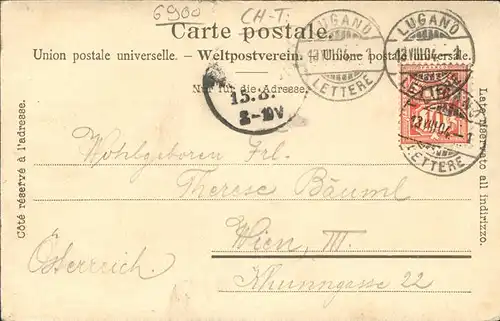 6900
CH-T.
Carte postale.
Union postale universelle. — Weltpostverein. — Unione postale universale.
Nur für die Adresse.
LUGANO
13.VIII.04. - 1
LETTERE
LUGANO
13.VIII.04. - 1
LETTERE
13.VIII.04
LETTERE
15.8.
Côté réservé à l'adresse.
Lato riservato all indirizzo.
Wohlgeboren Frl.
Therese Bäuml
Wien, III.
Österreich.
Khunngasse 22